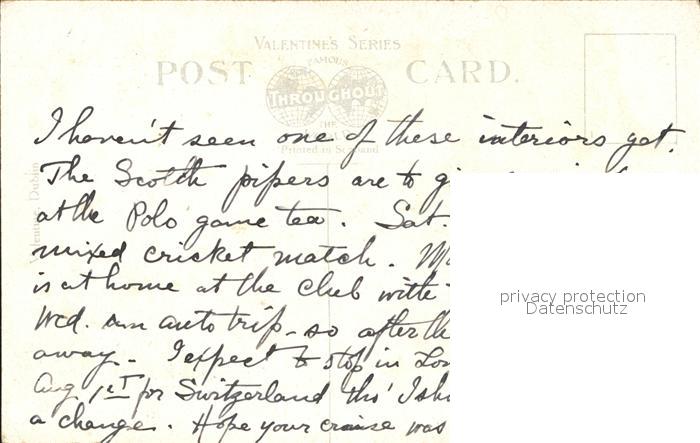 VALENTINE'S SERIES
POST CARD.
FAMOUS
THROUGHOUT
THE
Printed in Scotland
Valentine, Dublin
I haven't seen one of these interiors yet.
The Scotch pipers are to
at the Polo game tea. Sat.
mixed cricket match.
is at home at the Club with
Wed. an auto trip - so after
away - I expect to stop in
Aug 1st for Switzerland tho' I
a change. Hope your cruise was
privacy protection
Datenschutz